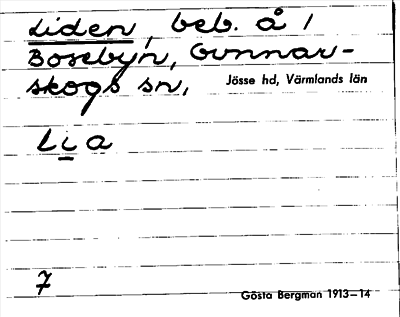 Liden, beb. å 1
Bosebyn, Gunnar-
skogs sn, Jösse hd, Värmlands län
Lia
7
Gösta Bergman 1913–14